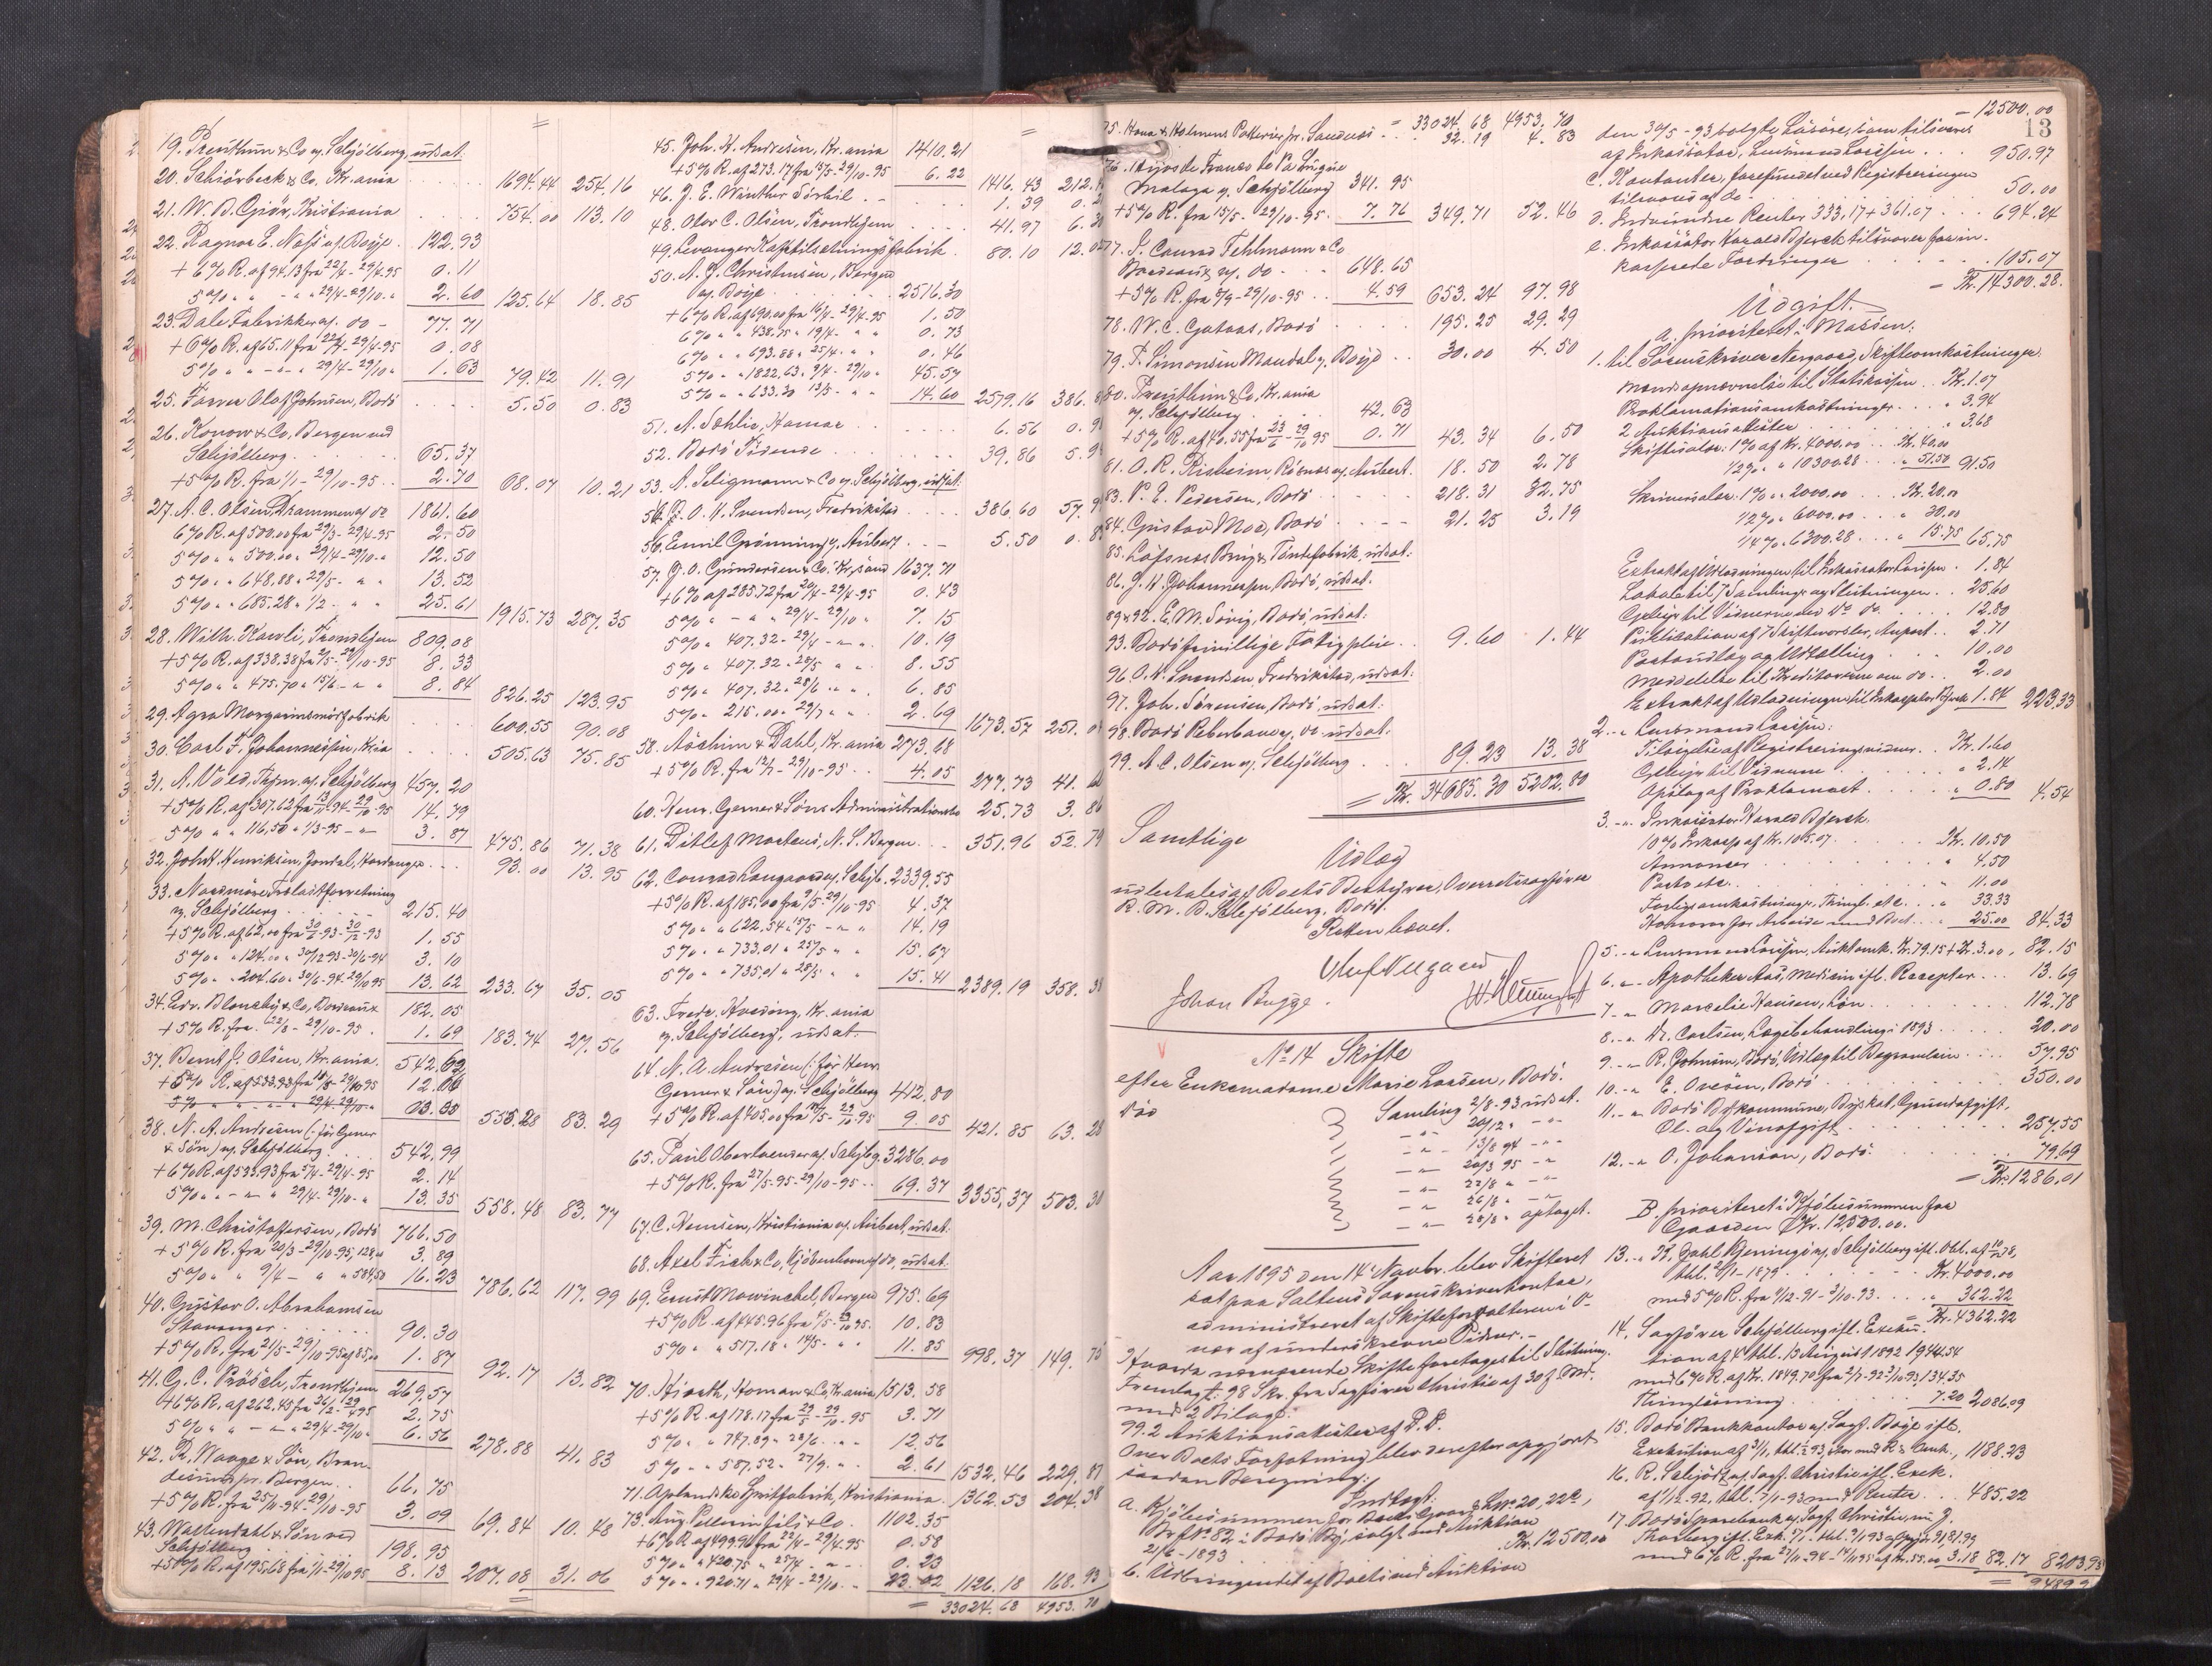 19. Prenthun & Co v. Schjölberg, udsat.
20. Schiörbeck & Co, Kr.ania . . . . 1694.44 254.16
21. W. B. Gjör, Kristiania . . . . 754.00 113.10
22. Ragnar E. Næss v. Boye . 122.93
+ 6% R. af 94.13 fra 22/4-29/4-95 0.11
5% " " - " " 29/4-29/10-" 2.60 125.64 18.85
23. Dale Fabrikker v. do - 77.71
+ 6% R. af 65.11 fra 22/4-29/4-95 0.08
5% " " - " - " 29/4-29/10-" 1.63 79.42 11.91
25. Farver Olaf Johnsen, Bodö . . . . 5.50 0.83
26. Konow & Co, Bergen ved
Schjölberg . . . . . 65.37
+ 5% R. fra 1/1-29/10-95 . . 2.70 68.07 10.21
27. A. C. Olsen, Drammen v. do 1861.60
6% R. af 500.00 fra 29/3-29/4-95 2.50
5% " " 500.00 " 29/4-29/10-" 12.50
5% " " 648.88 " 29/5- " " 13.52
5% " " 685.28 " 1/2- " " 25.61 1915.73 287.35
28. With. Kavli, Trondhjem 809.08
+ 5% R. af 338.38 fra 2/5-29/10-95 8.33
5% " " 475.70 " 15/6- " " 8.84 826.25 123.95
29. Agra Margarinsmörfabrik . . . . 600.55 90.08
30. Carl F. Johannessen, Kr.ia . . . . 505.63 75.85
31. A. Voed, Thjem v. Schjölberg 457.20
+ 5% R. af 307.62 fra 13/11-94-29/10-95 14.79
5% " " 116,50 " 1/3-95 - " 3.87 475.86 71.38
32. John Henriksen, Jondal, Hardanger . . . 93.00 13.95
33. Nordmöre Trolastforretning
v. Schjölberg . . . . . 215.40
+ 5% R. af 62,00 fra 30/6-93-30/12-93 1.55
5% " " 124.00 " 30/12 93-30/6-94 3.10
5% " " 204.60 " 30/6-94-29/10 95 13.62 233.67 35.05
34. Edv. Blonchy & Co, Bordeaux 182.05
+ 5% R. fra 22/8-29/10-95 . 1.69 183.74 27.56
37. Bernt J. Olsen, Kr.ania . 542.62
+ 5% R. af 533.93 fra 18/5-29/10 95 12.66
5% " " - " - " 29/4-29/10-" 555.28 83.29
38. N. A. Andresen (: för Gerner
& Sön) v. Schjölberg . . . . 542.99
+ 6% R. af 533.93 fra 5/4-29/4-95 2.14
5% " " - " - " 29/4-29/10-" 13.35 558.48 83.77
39. M. Christoffersen, Bodö 766.50
+ 5% R. fra 20/3-29/10-95, 128,00 3.89
5% " " 9/4 - " " 584,50 16.23 786.62 117.99
40. Gustav O. Abrahamsen
Stavanger . . . . . . 90.30
+ 5% R. fra 21/5-29/10-95 af 85,00 1.87 92.17 13.82
41. C. C. Rösch, Trondhjem 269.57
+ 6% R. af 262.45 fra 26/2-29/4 95 2.75
5% " " - " - " 29/4-29/10-" 6.56 278.88 41.83
42. R. Waage & Sön, Bran-
desund pr. Bergen . . 66.75
+ 5% R. fra 25/11-94-29/10-95 3.09 69.84 10.48
43. Wallendahl & Sön ved
Schjölberg . . . . . 198.95
+ 5% R. af 195.68 fra 1/1-29/10 95 8.13 207.08 31.06
45. Joh. H. Andresen, Kr.ania 1410.21
+ 5% R. af 273.17 fra 15/5-29/10-95 6.22 1416.43 212.
46. J. E. Winther Sörkil . - . . . 1.39 0.
48. Olav C. Olsen, Trondhjem . . . . 41.97 6.
49. Levanger Uldspinderi . . . 80.10 12.
50. A. J. Christensen, Bergen
v. Boye . . . . . . 2516.30
+ 6% R. af 690.00 fra 16/4-29/4-95 1.50
6% " " 438.75 " 19/4 - " " 0.73
6% " " 693.88 " 25/4 - " " 0.46
5% " " 1822,63 " 9/4-29/10 " 45.57
5% " " 633.30 " 13/5 - " " 14.60 2579.16 386.
51. N. Sæhlie, Hamar . . . . . . 6.56 0.9
52. Bodö Tidende . . . . . . 39.86 5.9
53. N. Seligmann & Co v. Schjölberg, udsat.
54. O. N. Svendsen, Fredrikstad . . . . 386.60 57.9
56. Emil Grönning v. Aubert . - - 5.50 0.8
57. J. O. Gundersen & Co. Kr.sand 1637.71
+ 6% af 285.72 fra 20/4-29/4-95 0.43
5% " - " " 29/4-29/10 " 7.15
5% " 407.32 - 29/4 - " - 10.19
5% " 407.32 - 28/5 " " 8.55
5% " 407.32 - 28/6 " " 6.85
5% " 215.00 - 29/7 " " 2.69 1673.57 251.0
58. Aschim & Dahl, Kr.ania 273.68
+ 5% R. fra 12/7-29/10-95 . . 4.05 277.73 41.
60. Henr. Gerner & Söns Administrationsbo 25.73 3.86
61. Ditlef Martens, N. S. Bergen . . . 351.96 52.79
62. Conrad Langaard v. Schjb. 2339.55
+ 5% R. af 185.00 fra 9/5-29/10-95 4.37
5% " " 622.54 " 15/5 - " " 14.19
5% " " 733.01 " 25/5 " " 15.67
5% " " 735,01 " 28/5 " " 15.41 2389.19 358.38
63. Fredr. Hvesing, Kr.ania
v. Schjölberg, udsat.
64. N. A. Andresen (: för Henr.
Gerner & Sön) v. Schjölberg 412.80
+ 5% R. af 405.00 fra 18/5-29/10-95 9.05 421.85 63.28
65. Paul Oberlaender v. Schjbg. 3286.00
+ 5% R. fra 27/5-95-29/10-95 . . 69.37 3355,37 503.30
67. C. Hansen, Kristiania v. Aubert, udsat.
68. Axel Fick & Co, Kjöbenhavn v. do, udsat.
69. Ernst Mowinckel, Bergen 975.69
+ 5% R. af 445.96 fra 4/5-29/10 95 10.83
5% " " 517.18 " 14/5 - " " 11.85 998.37 149.75
70. Hiorth, Homan & Co, Kr.ania 1513.58
+ 5% R. af 178.17 fra 29/5-29/10-95 3.71
5% " " 747.89 " 28/6 . . " 12.56
5% " " 587.52 " 27/9 " " 2.61 1532.46 229.87
71. Aplandske Spritfabrik, Kristiania . 1362.53 204.38
73. Aug. Pellerin fils & Co . 1102.35
+ 6% R. af 499.91 fra 22/4-29/4-95 0.58
5% " " 420.75 " 25/4 - " - 0.23
5% " " 920.71 " 29/4-29/10 . 23.02 1126.18 168.93
= 33024.68 4953.70
13
= 33024.68 4953.70
75. Hona & Holmens Potteries pr. Sandnes . . 32.19 4.83
76. Hijos de Franco de Pa
Malaga v. Schjölberg 341.95
+ 5% R. fra 15/5-29/10-95 . 7.76 349.71 52.46
77. S. Conrad Fehlmann & Co
Bordeaux v. do . . 648.65
+ 5% R. fra 9/9-29/10-95 . . 4.59 653.24 97.98
78. W. C. Gutaas, Bodö . . . . 195.25 29.29
79. P. Simonsen Mandal v. Boye . . 30.00 4.50
80. Prenthun & Co, Kr.ania
v. Schjölberg . . . . 42.63
+ 5% R. af 40.55 fra 23/6-29/10 95 0.71 43.34 6.50
81. O. R. Risheim, Rösnes v. Aubert . 18.50 2.78
83. P. E. Pedersen, Bodö . . . . 218.31 32.75
84. Gustav Moe, Bodö . . - - 21.25 3.19
85. Löfsnes Brug & Töndefabrik, udsat.
86. J. H. Johannessen, Bodö, udsat.
89 & 92. E. M. Sövig, Bodö, udsat.
93. Bodö frivillige Fattigpleie . . 9.60 1.44
96. O. N. Svendsen, Fredrikstad, udsat.
97. Joh. Sörensen, Bodö, udsat.
98. Bodö Reberbane v. do udsat.
99. A. C. Olsen v. Schjölberg . . . . 89.23 13.38
= Kr. 34685.30 5202.80
Samtlige
Udlæg
udbetales af Boets Bestyrer, Overretssagförer
R. M. B. Schjölberg, Bodö.
Retten hævet.
Johan Bugge.
No 14 Skifte
efter Enkemadame Marie Larsen, Bodö.
Samling 2/8-93 udsat.
-"- 20/12 - -"-
-"- 13/8 94 - "-
-"- 20/3 95 - "
-"- 22/8 " - "-
-"- 26/8 " - "-
-"- 28/8 " optaget.
Aar 1895 den 14' Novbr. blev Skifteret
sat paa Saltens Sorenskriverkontor,
administreret af Skifteforvalteren i O-
vær af underskrevne Vidner. -
Hvorda nærværende Skifte foretages til Slutning.
Fremlagt: 98 Skr. fra Sagförer Christie af 30 f. Md.
med 2 Bilage.
99. 2 Auktionsakster af D. D.
Over Boets Forfatning blev derefter opgjort
saadan Beregning:
Indtægt:
a. Kjöbesummen for Boets Gaard Lno 20, 22a,
Br.No 52 i Bodö By, solgt ved Auktion
21/6-1893 . . . . . Kr. 12500,00
b. Udbringendet af Boets ved Auktion
= 12500.00
den 30/5-93 solgte Lösöre, som tilsvares
af Inkassator, Lensmand Larssen . . . 950.97
c. Kontanter, forefundet ved Registreringen
tilsvares af do . . . . . 50.00
d. Indvundne Renter 333,17 + 361.07 . . . 694.24
e. Inkassator Harald Bjerch tilsvarer for in-
kasserede Fordringer . . . . . . 105.07
= Kr. 14300.28.
Udgift.
A. prioriteret i Massen:
1. til Sorenskriver Nergaard, Skifteomkostninger:
Mandsopnævnelse til Statskassen . . Kr. 1.07
Proklamationsomkostninger . . . " 3.94
2 Auktionsakster . . . . . " 3.68
Skiftesalær: 1% af Kr. 4000.00 . . Kr. 40.00
1/2% " " 10300.28 . . " 51.50 91.50
Skriversalær: 1% " " 2000.00 . . . Kr. 20.00
1/2% " 6000.00 . . " 30.00
1/4% " 6300.28 . . . " 15.75 65.75
Extrakt af Udlodningen til Inkassator Larssen . 1.84
Lokale til 7 Samlinger og Slutningen . . 25.60
Gebyr til Vidnerne ved do do . . . 12.80
Publikation af 7 Skiftevarsler, Auport . . 2.71
Postindlæg og Udbetaling . . . 10.00
Meddelse til Kreditorerne om do . . 2.00
Extrakt af Udlodningen til Inkassator Bjerch 1.84 223.33
2. - Lensmand Larssen:
Tilsigelse af Registreringsvidner . . Kr. 1.60
Gebyr til Vidnerne . . . . " 2.14
Opslag af Proklamaet . . . . " 0.80 4.54
3. -"- Inkassator Harald Bjerch.
10% Inkasso af Kr. 105.07 . . . . Kr. 10.50
Annoncer . . . . . . " 4.50
Porto etc. . . . . . " 11.00
Forligsomkostninger, Thingl. etc. . . " 33.33
Honorar for Arbeide med Boet . . " 25.00 84.33
5. -"- Lensmand Larssen, Auktomk. Kr. 79.15 + Kr. 3.00, 82.15
6. -"- Apotheker Aas, Medicin ifl. Recepter . . . 13.69
7. -"- Marcelie Hansen, Lön . . . . . 112.78
8. -"- Dr. Carlsen, Lægebehandling i 1893 . . . . 20.00
9. -"- R. Johnsen, Bodö, Udlæg til Begravelsen . . . 57.95
10. -"- E. Ovesen, Bodö . . . . . . 350.00
11. -"- Bodö Bykommune, Byskat, Grundafgift,
Öl- og Vinafgift . . . . . . 257.55
12. -"- O. Johansen, Bodö . . . . 79.69
= Kr. 1286.01
B. prioriteret i Kjöbesummen for
Gaarden Kr. 12,500.00.
13. -"- K. Zahl Kjerringö v. Schjölberg ifl. Obl. af 10/12 78,
thl. 20/1-1879 . . . . . Kr. 4000.00
med 5% R. fra 9/12-91-3/10-93 . . . " 362.22
Kr. 4362.22
14. Sagförer Schjölberg ifl. Exeku-
tion af 4' thl. 13 August 1892 1944.54
med 6% R. af Kr. 1849.70 fra 2/7-92 3/10 93, 134.35
Thinglæsning . . . . . . 7.20 2086.09
15. Bodö Bankkontor v. Sagf. Boye ifl.
Exekution af 3/1, thl. 7/1 93, stor med R & Omk., 1188.23
16. R. Schjött v. Sagf. Christie ifl. Exek.
af 1/12-92, thl. 7/1-93 med Renter . . . 485.22
17. Bodö Sparebank v. Sagf. Christie, m. J.
Thorberg ifl. Exk. 7/1-thl. 7/1 93 opgjort 21,81.99
med 6% R. fra 27/11-94-14/11 95 af Kr. 55.00 3.18 82.17 8203.93
= 9489.9